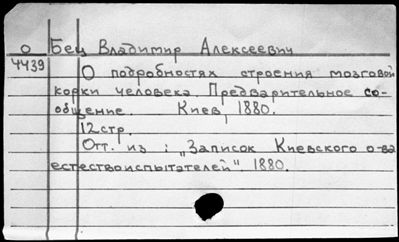 О Бец Владимир Алексеевич
4439
О подробностях строения мозговой
корки человека. Предварительное со-
общение. Киев, 1880.
12 стр.
Отт. из: „Записок Киевского о-ва
естествоиспытателей". 1880.